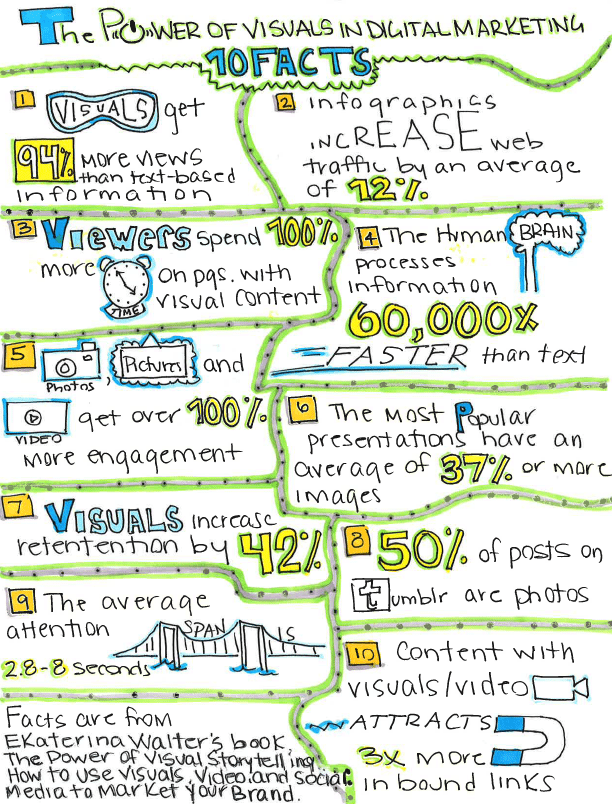 The POWER OF VISUALS IN DIGITAL MARKETING
10 FACTS
1 VISUALS get
94% MORE VIEWS
than text-based
information
2 Infographics
INCREASE web
traffic by an average
of 12%
3 VIEWERS spend 100%
more TIME on pgs. with
visual content
4 The Human BRAIN
processes
information
60,000X
FASTER than text
5 Photos, Pictures and
VIDEO get over 100%
more engagement
6 The Most Popular
presentations have an
average of 37% or more
images
7 VISUALS increase
retention by 42%
8 50% of posts on
tumblr are photos
9 The average
attention SPAN IS
2.8-8 seconds
10 Content with
visuals/video
ATTRACTS
3x more
in bound links
Facts are from
Ekaterina Walter's book,
The Power of Visual Storytelling,
How to use Visuals, Video and Social
Media to Market Your Brand.